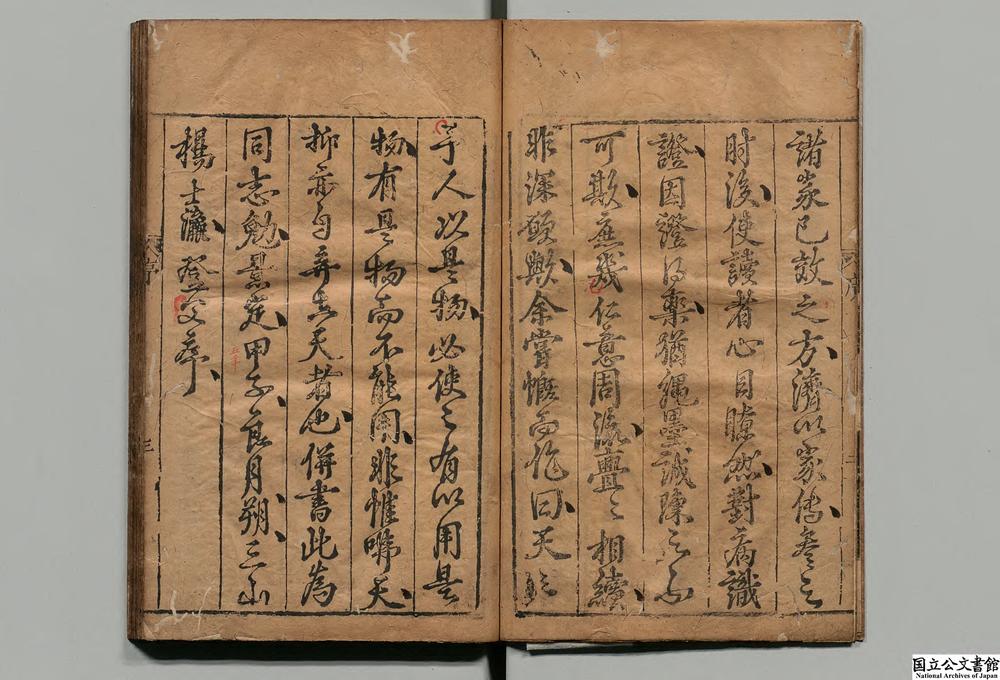 諸家已效之方濟以家傳參之
肘後使讀者心目瞭然對病識
證因證得藥猶繩墨誠陳之不
可欺庶幾仁意周流亹〻相續
非深願歟余嘗慨而作曰天
序
予人以是物必使之有以用是
物有是物而不能用非惟天
抑亦自弃其天者也併書此為
同志勉景定甲子良月朔三山
楊士瀛登父序
序
三
国立公文書館
National Archives of Japan